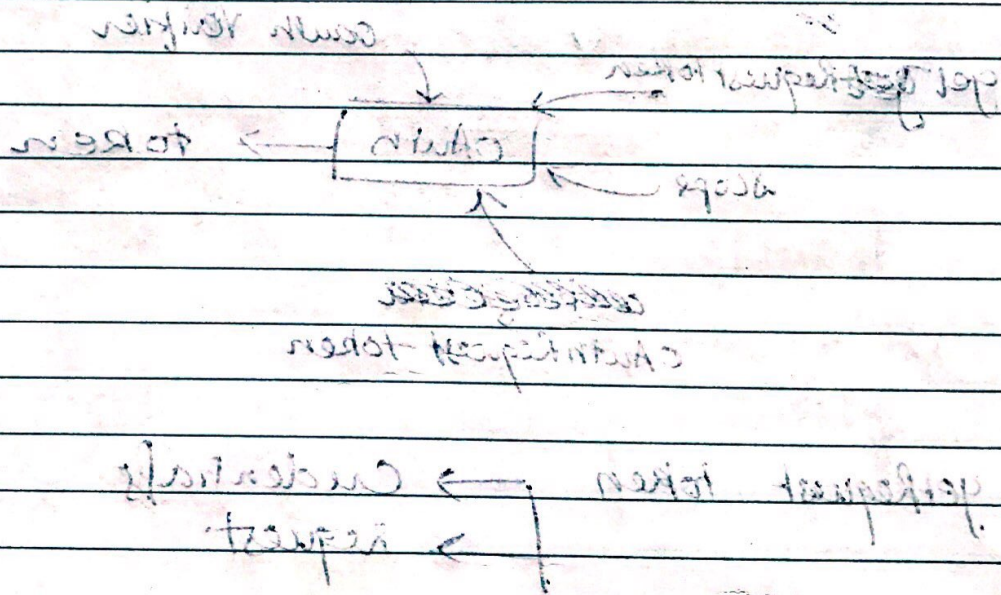 oauth verifier
get RequestToken
OAuth → token
scope
OAuthRequest token
getRequest token → Credentials
→ request